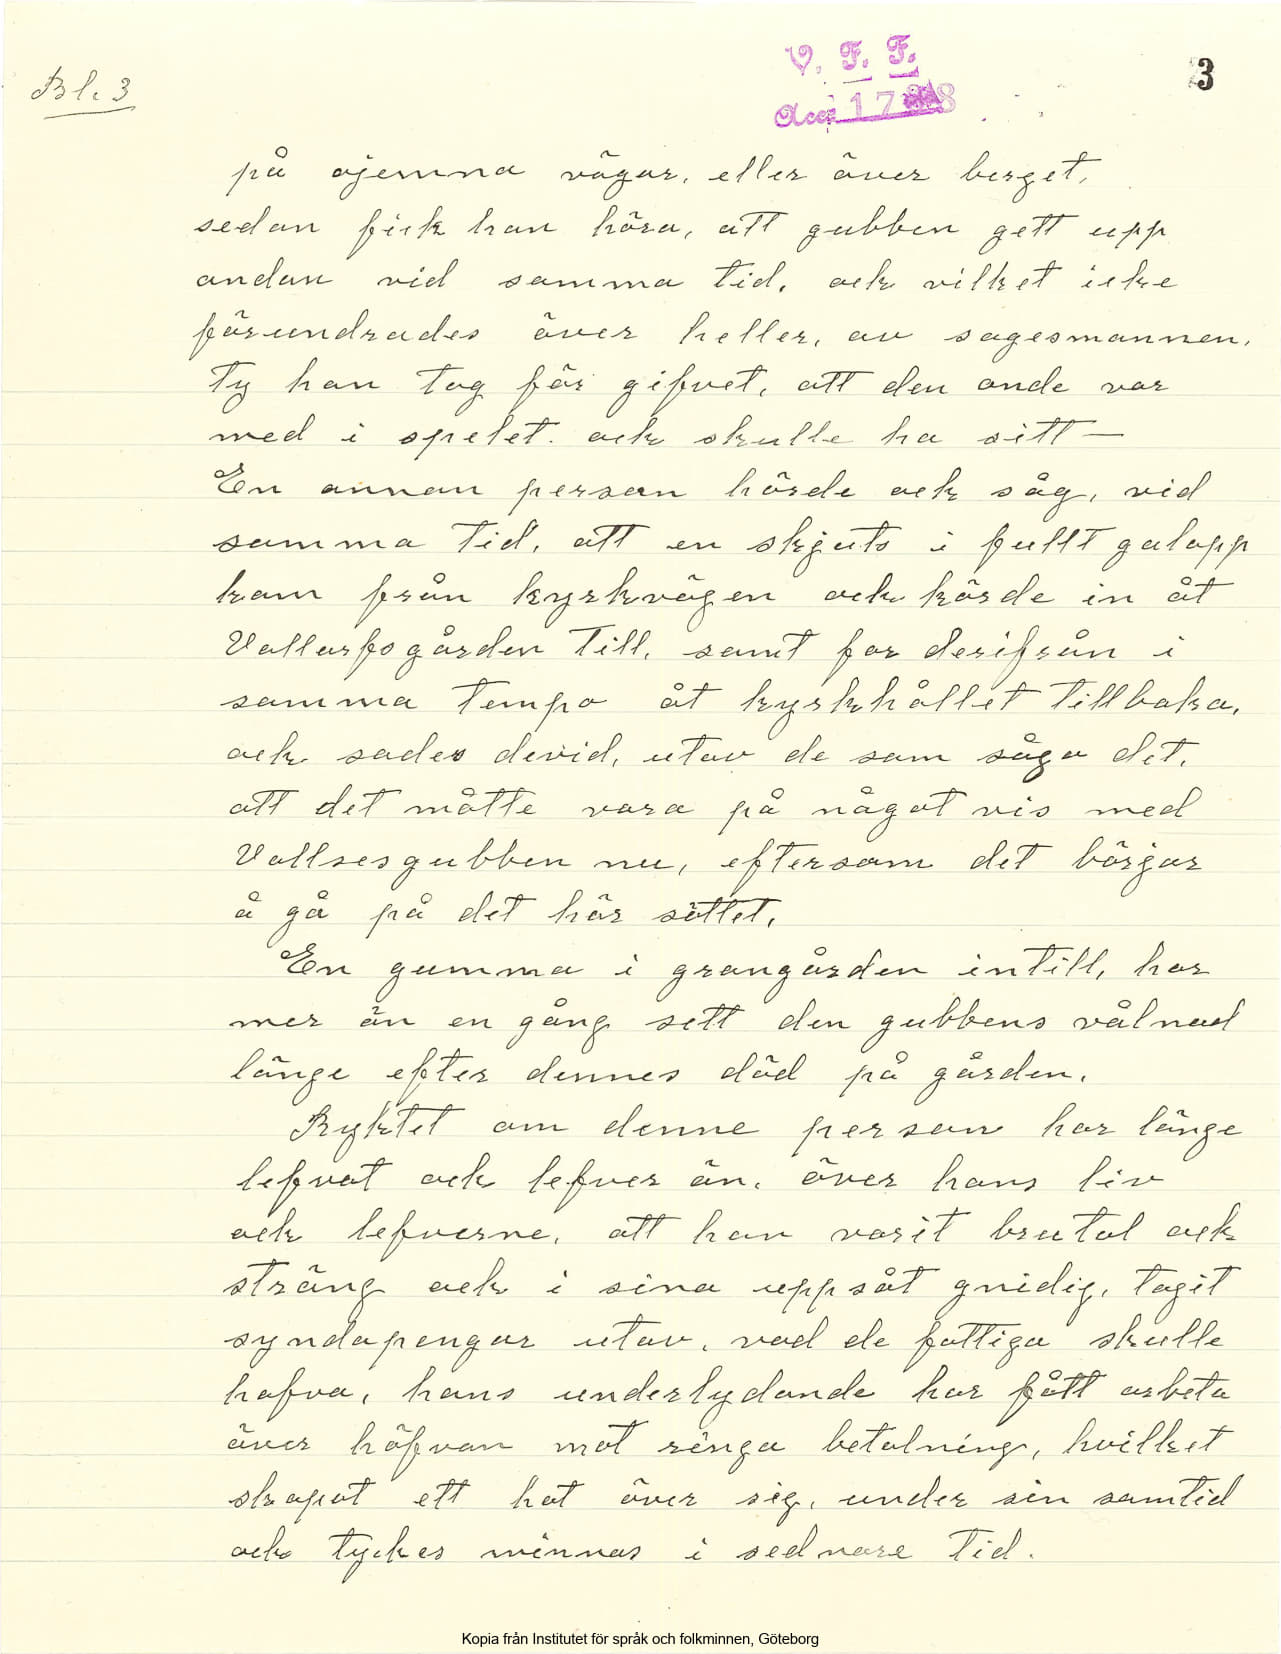 Bl. 3
V. F. F.
Acc. 1788
3
på ojemna vägar, eller över berget,
sedan fick han höra, att gubben gett upp
andan vid samma tid, ock vilket icke
förundrades över heller, av sagesmannen.
Ty han tog för gifvet, att den onde var
med i spelet. ock skulle ha sitt —
En annan person hörde ock såg, vid
samma tid, att en skjuts i fullt galopp
kom från kyrkvägen ock körde in åt
till, samt for derifrån i
samma tempo åt kyrkhållet tillbaka,
ock sades dervid, utav de som såga det,
att det måtte vara på något vis med
Vallsesgubben nu, eftersom det börjar
å gå på det här sättet.
En gumma i granngården intill, har
mer än en gång sett den gubbens vålnad
länge efter dennes död på gården.
Ryktet om denne person har länge
lefvat ock lefver än. över hans liv
ock lefverne, att han varit brutal ock
sträng ock i sina uppsåt gnidig, tagit
syndapengar utav, vad de fattiga skulle
hafva, hans underlydande har fått arbeta
över höfvan mot ringa betalning, hvilket
skapat ett hat över sig, under sin samtid
ock tyckes minnas i sednare tid.
Kopia från Institutet för språk och folkminnen, Göteborg